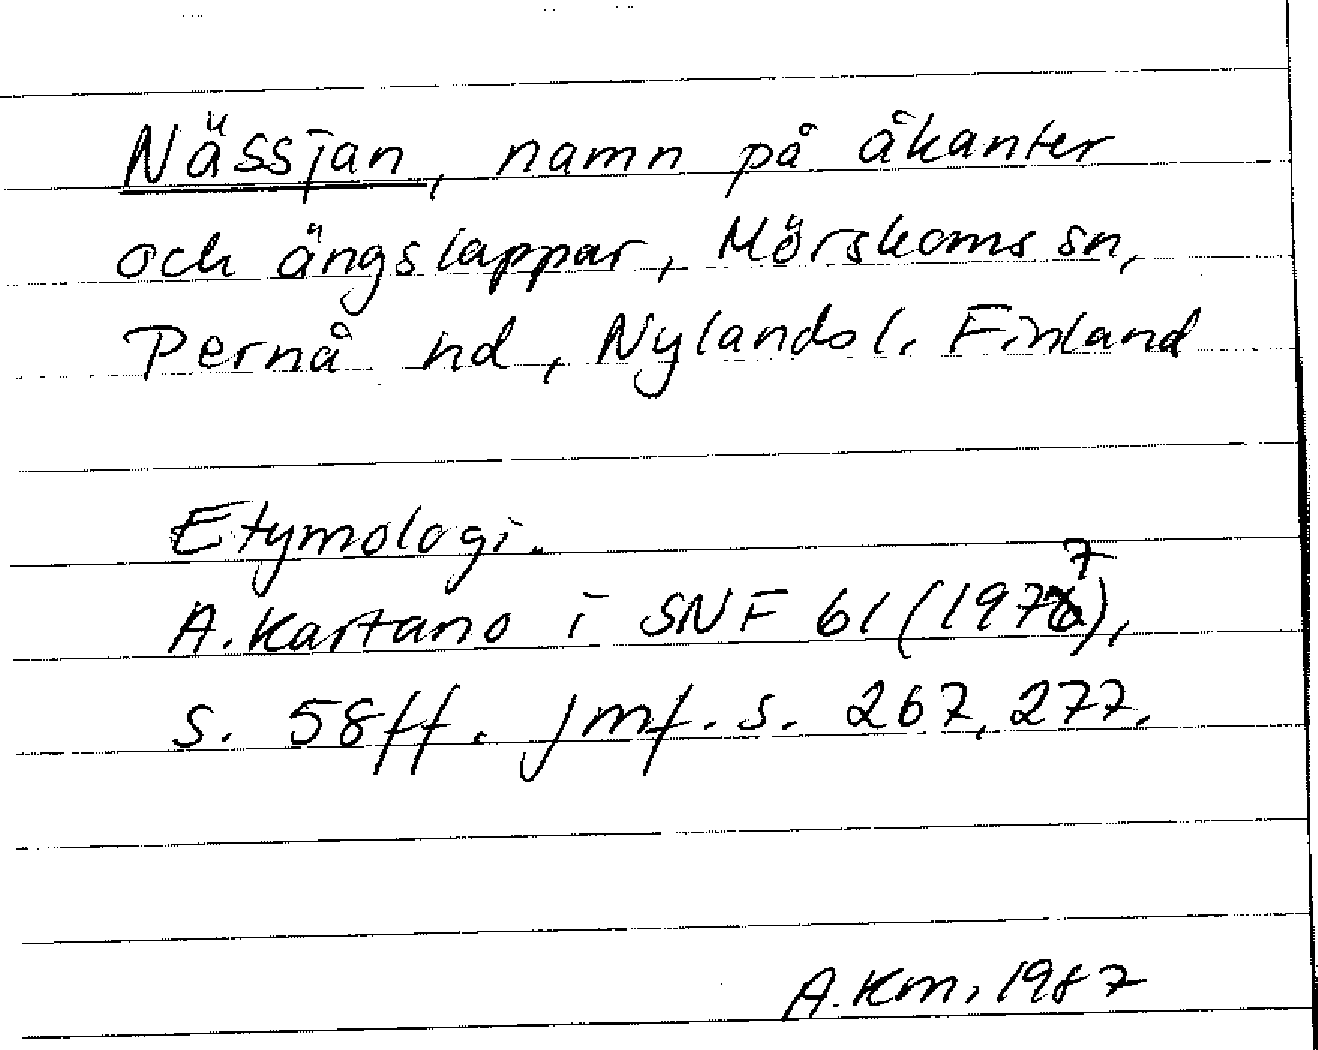 Nässjan, namn på åkanter
och ängslappar, Mörskoms sn,
Pernå hd, Nylands l. Finland
Etymologi.
A. Kartano i SNF 61 (1977),
s. 58ff. Jmf. s. 267, 277.
A.Km. 1987